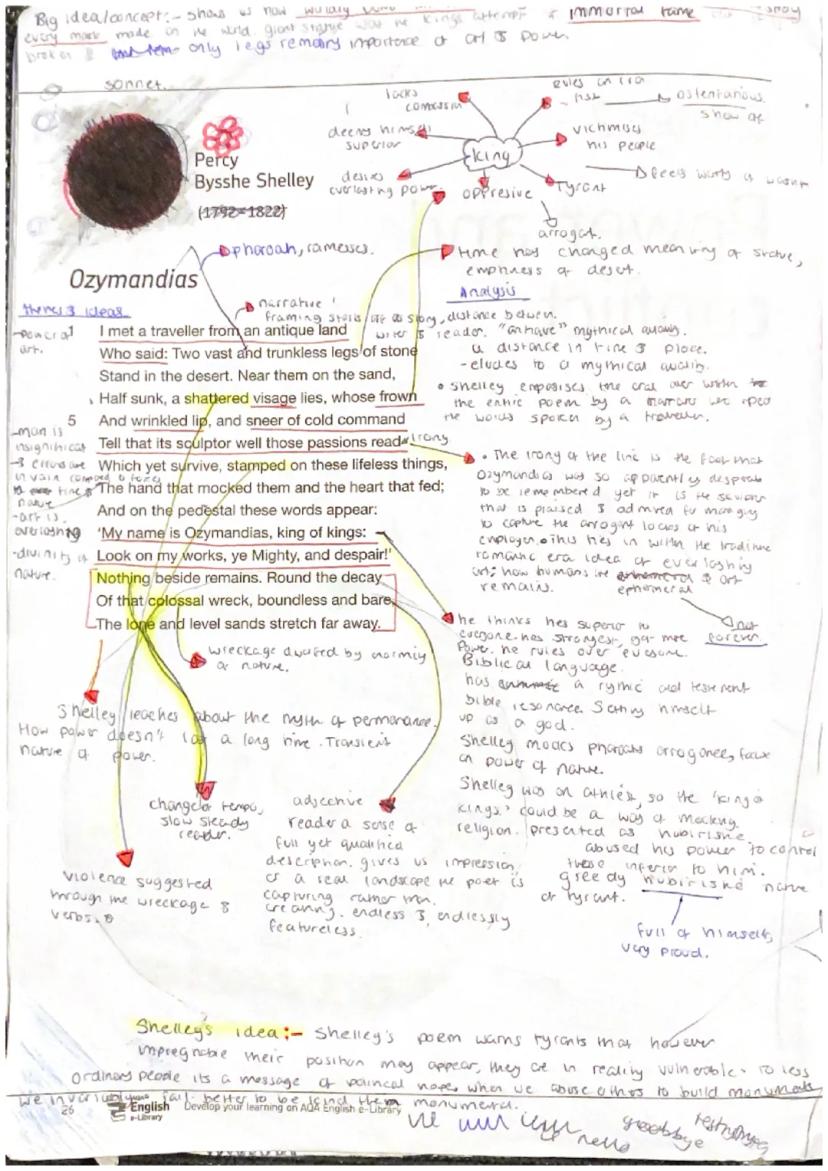 Big idea/concept:- shows us how
every mark made on the world. giant statue was the kings attempt immortal fame
broken & only legs remain, importance of art & power.
sonnet.
lacks
comassin
rules on
ostentatious
show of
deems himself
superior
king
victimises
his people
desires
everlasting power.
oppresive
Tyrant
arrogat.
Percy
Bysshe Shelley
(1792–1822)
pharoah, ramesses.
time has changed meaning of statue,
empiness of desert.
Ozymandias
themes & ideas
Analysis
narrative
framing starts off as story, distance between
writer & reader. "antique" mythical quality.
distance in time & place.
- eludes to a mythical quality.
• Shelley emposises the oral over written
the entire poem by a narrator
the words spoken by a traveller.
-power of
art.
1 I met a traveller from an antique land
Who said: Two vast and trunkless legs of stone
Stand in the desert. Near them on the sand,
Half sunk, a shattered visage lies, whose frown
5 And wrinkled lip, and sneer of cold command
Tell that its sculptor well those passions read
Which yet survive, stamped on these lifeless things,
The hand that mocked them and the heart that fed;
And on the pedestal these words appear:
10 ‘My name is Ozymandias, king of kings:
Look on my works, ye Mighty, and despair!’
Nothing beside remains. Round the decay
Of that colossal wreck, boundless and bare,
The lone and level sands stretch far away.
-man is
insignificat
in vain
nature
-art is
everlasting
-divinity of
nature.
irony
• The irony of the line is the fact that
Ozymandias was so apparently desprate
to be remembered yet it is the
that is praised & admired for managing
to capture the arrogant looks of his
employer. • this ties in with the
romantic era idea of everlasting
art; how humans are & art
remains.
ephemeral
not
forever
he thinks hes superior to
everyone. hes strongest, got more
power. he rules over everyone.
Biblical language.
has a rymic old testement
bible resonance. Setting himself
up as a god.
Shelley mocks pharoahs arrogance, focus
on power of nature.
Shelley was an athiest, so the 'king of
kings' could be a way of mocking
religion. presented as hubirishe
abused his power to control
these inferior to him.
greedy hubirishe nature
of tyrant.
full of himself,
very proud.
wreckage dwarfed by
of nature.
Shelley teaches about the myth of permanance.
How power doesn't last a long time. Transient
nature of power.
change of tempo,
slow steady
reader.
adjective
reader a sense of
full yet qualified
description. gives us impression
of a real landscape the poet is
capturing rather than
creating. endless & endlessly
featureless.
violence suggested
through the wreckage &
verbs.
Shelley's idea:- Shelley's poem warns tyrants that however
impregnable their position may appear, they are in reality vulnerable. To less
ordinary people its a message of political hope. when we abuse others to build monuments
we invariably fail. better to be
monumental.
26 English e-Library Develop your learning on AQA English e-Library